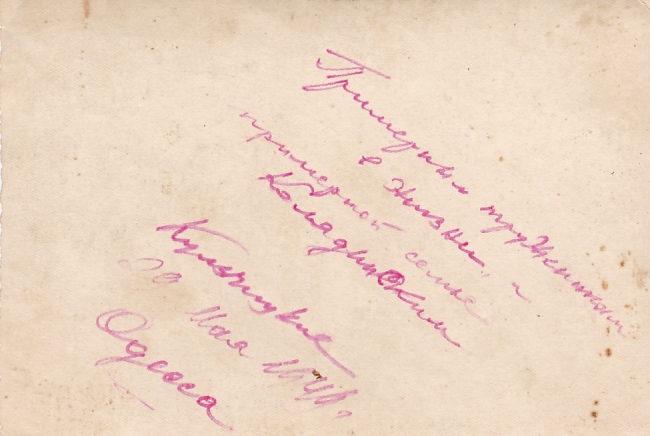 Примерным труженикам
в жизни, и
примерной семье
Комадинским
Кульчицкие
20 мая
Одесса